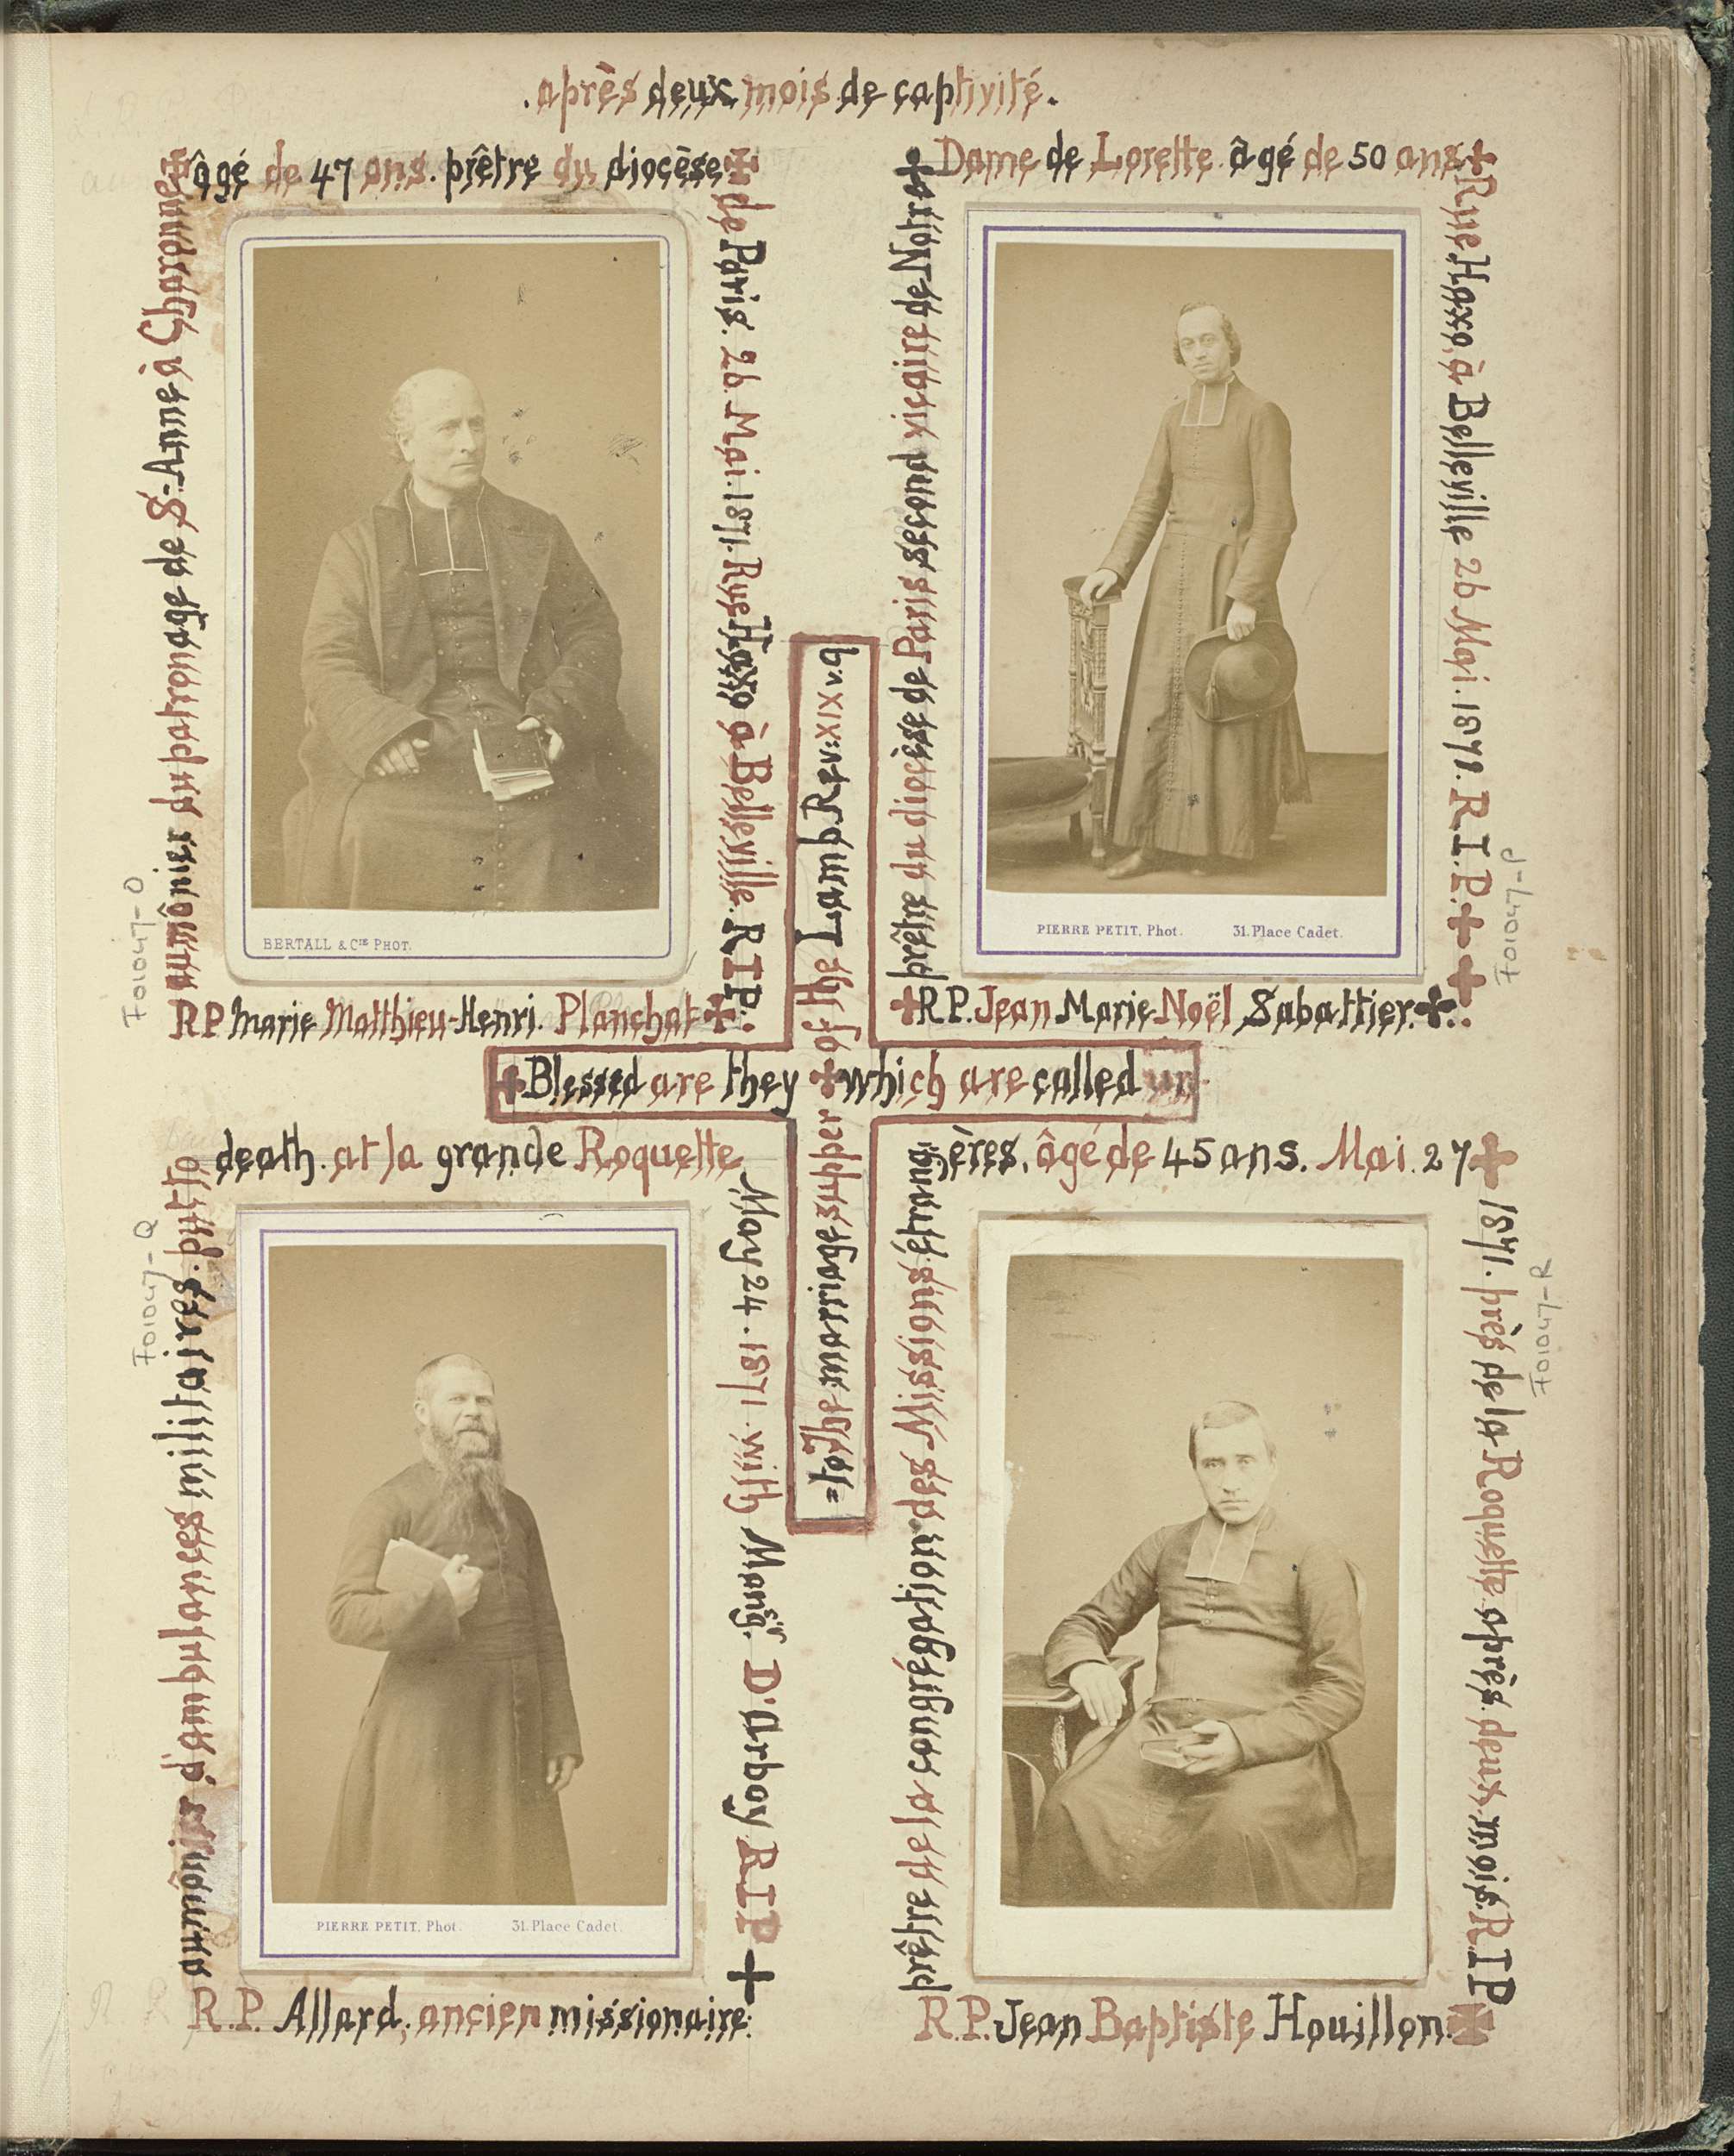 .après deux mois de captivité.
R P Marie Matthieu-Henri. Planchat
aumônier du patronage de S-Anne à Charonne
âgé de 47 ans. prêtre du diocèse
de Paris. 26. Mai. 1871. Rue Haxo à Belleville. R I P.
BERTALL & CIE PHOT.
F01047-O
R P. Jean Marie Noël Sabattier.
prêtre du diocèse de Paris second vicaire de Notre
Dame de Lorette. âgé de 50 ans
Rue Haxo, à Belleville 26 Mai. 1871. R.I.P.
PIERRE PETIT, Phot. 31. Place Cadet.
F01047-P
Blessed are they which are called un
=to The marriage supper of the Lamb Rev: XIX v. 9
R.P. Allard, ancien missionaire.
aumônier d'ambulances militaires. put to
death. at la grande Roquette
May 24. 1871. with Mongsr. D'arboy R I P
PIERRE PETIT, Phot. 31. Place Cadet.
F01047-Q
R.P. Jean Baptiste Houillon.
prêtre de la congrégation des Missions étrang
ères, âgé de 45 ans. Mai. 27
1871. près de la Roquette après. deux. mois. R I P
F01047-R